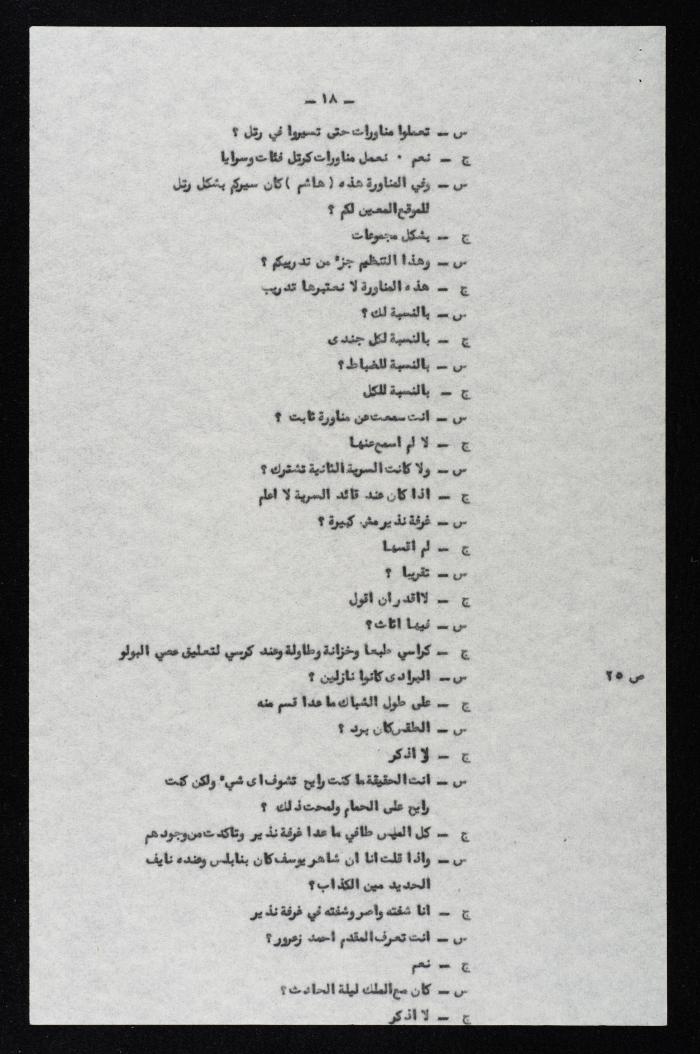 ـ ١٨ ـ
س ـ تعملوا مناورات حتى تسيروا في رتل ؟
ج ـ نعم ٠ نعمل مناورات كرتل فئات وسرايا
س ـ وفي المناورة هذه ( هاشم ) كان سيركم بشكل رتل
للموقع المعين لكم ؟
ج ـ بشكل مجموعات
س ـ وهذا التنظيم جزء من تدريبكم ؟
ج ـ هذه المناورة لا نعتبرها تدريب
س ـ بالنسبة لك ؟
ج ـ بالنسبة لكل جندى
س ـ بالنسبة للضباط ؟
ج ـ بالنسبة للكل
س ـ انت سمعت عن مناورة ثابت ؟
ج ـ لا لم اسمع عنها
س ـ ولا كانت السرية الثانية تشترك ؟
ج ـ اذا كان عند قائد السرية لا اعلم
س ـ غرفة نذير مش كبيرة ؟
ج ـ لم اقسها
س ـ تقريبا ؟
ج ـ لااقدر ان اقول
س ـ فيها اثاث ؟
ج ـ كراسي طبعا وخزانة وطاولة وعند كرسي لتعليق عصي البولو
س ـ البرادى كانوا نازلين ؟
ص ٢٥
ج ـ على طول الشباك ما عدا قسم منه
س ـ الطقس كان برد ؟
ج ـ لا اذكر
س ـ انت الحقيقة ما كنت رايح تشوف اى شيء ولكن كنت
رايح على الحمام ولمحت ذلك ؟
ج ـ كل الميس طافي ما عدا غرفة نذير وتاكدت من وجودهم
س ـ واذا قلت انا ان شاهر يوسف كان بنابلس وعنده نايف
الحديد مين الكذاب ؟
ج ـ انا شفته واصر وشفته في غرفة نذير
س ـ انت تعرف المقدم احمد زعرور ؟
ج ـ نعم
س ـ كان مع الملك ليلة الحادث ؟
ج ـ لا اذكر